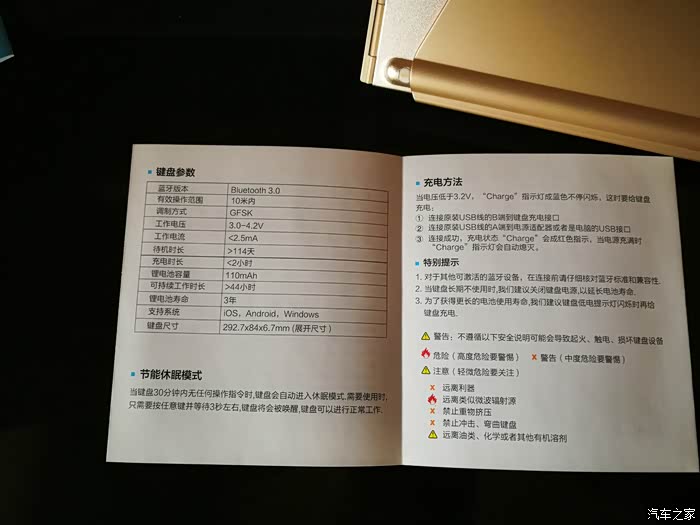 键盘参数
蓝牙版本 Bluetooth 3.0
有效操作范围 10米内
调制方式 GFSK
工作电压 3.0~4.2V
工作电流 <2.5mA
待机时长 >114天
充电时长 <2小时
锂电池容量 110mAh
可持续工作时长 >44小时
锂电池寿命 3年
支持系统 iOS, Android, Windows
键盘尺寸 292.7x84x6.7mm (展开尺寸)
节能休眠模式
当键盘30分钟内无任何操作指令时,键盘会自动进入休眠模式.需要使用时,
只需要按任意键并等待3秒左右,键盘将会被唤醒,键盘可以进行正常工作.
充电方法
当电压低于3.2V,“Charge”指示灯成蓝色不停闪烁,这时要给键盘
充电:
① 连接原装USB线的B端到键盘充电接口
② 连接原装USB线的A端到电源适配器或者是电脑的USB接口
③ 连接成功,充电状态“Charge”会成红色指示,当电源充满时
“Charge”指示灯会自动熄灭。
特别提示
1. 对于其他可激活的蓝牙设备,在连接前请仔细核对蓝牙标准和兼容性.
2. 当键盘长期不使用时,我们建议关闭键盘电源,以延长电池寿命.
3. 为了获得更长的电池使用寿命,我们建议键盘低电提示灯闪烁时再给
键盘充电.
警告:不遵循以下安全说明可能会导致起火、触电、损坏键盘设备
危险(高度危险要警惕) x 警告(中度危险要警惕)
注意(轻微危险要关注)
x 远离利器
远离类似微波辐射源
x 禁止重物挤压
x 禁止冲击、弯曲键盘
远离油类、化学或者其他有机溶剂
汽车之家